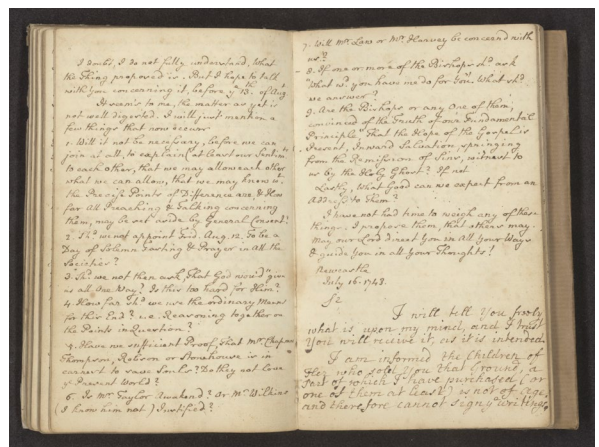 I doubt, I do not fully understand, What
the Thing proposed is. But I hope to talk
with you concerning it, before ye 13th of Augt
It seems to me, the matter as yet is
not well digested. I will just mention a
few things that now occur
1. Will it not be necessary, before we can
join at all, to explain (at least) our Sentimts
to each other, that we may allow each other
what we can allow, that we may know
the Precise Points of Difference are, & How
far all Preaching & Talking concerning
them, may be set aside by General Consent?
2. Shd we not appoint Frid. Aug. 12. To be a
Day of Solemn Fasting & Prayer in All the
Societies?
3. Shd we not then ask, That God would give
us all One Way? Is this too hard for Him?
4. How far shd we use the ordinary Means
for this End? i.e. Reasoning together on
the Points in Question?
5. Have we sufficient Proof, That Mr. Chapman
Thompson, Robson or Stonehouse is in
earnest to save Souls? Do they not love
ye Present World?
6. Is Mr. Taylor Awakend? Or Mr. Wilkins
(I know him not) Justified?
7. Will Mr. Law or Mr. Hervey be concernd with
us?
8. If one or more of the Bishops shd ask
"What wd you have me do for You? What shd
we answer?
9. Are the Bishops or any One of them,
convinced of the Truth of our Fundamental
Principle "That the Hope of the Gospel is
Present, Inward Salvation, springing
from the Remission of Sins, witnest to
us by the Holy Ghost? If not
Lastly, What Good can we expect from an
Address to Them?
I have not had time to weigh any of these
things. I propose them, that others may.
May our Lord direct You in All your Ways
& guide You in all your Thoughts!
Newcastle
July 16. 1748.
I will tell You freely
what is upon my mind, and I trust
You will receive it, as it is intended.
I am informed the Children of
Her who sold You that Ground, a
Part of which I have purchased (or
one of them at least) is not of Age,
and therefore cannot sign ye Writings,